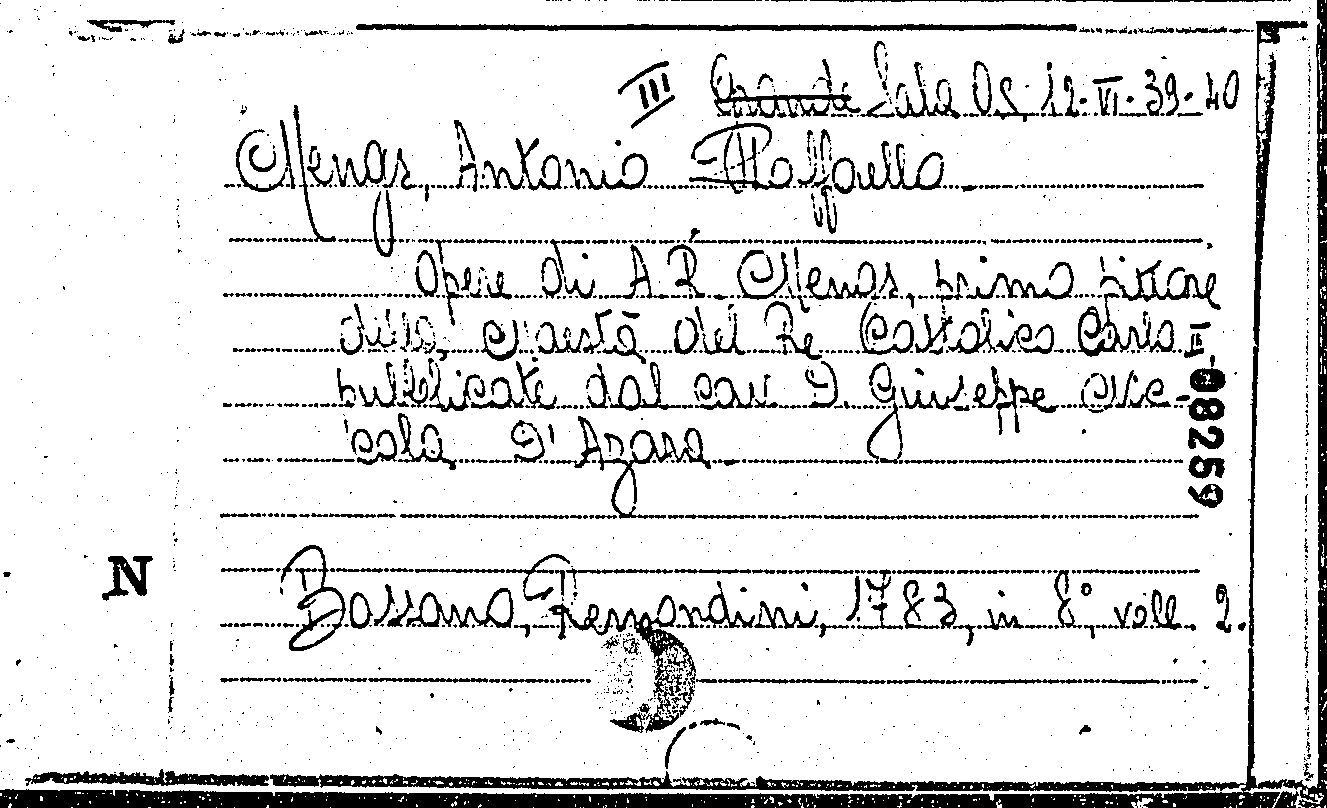 III Grande Sala Os. 12. VI. 39-40
Mengs, Antonio Raffaello.
Opere di A. R. Mengs, primo pittore
della Maestà del Re Cattolico Carlo III
pubblicate dal cav. D. Giuseppe Nic-
cola D'Azara.
08259
N
Bassano, Remondini, 1783, in 8°, voll. 2.